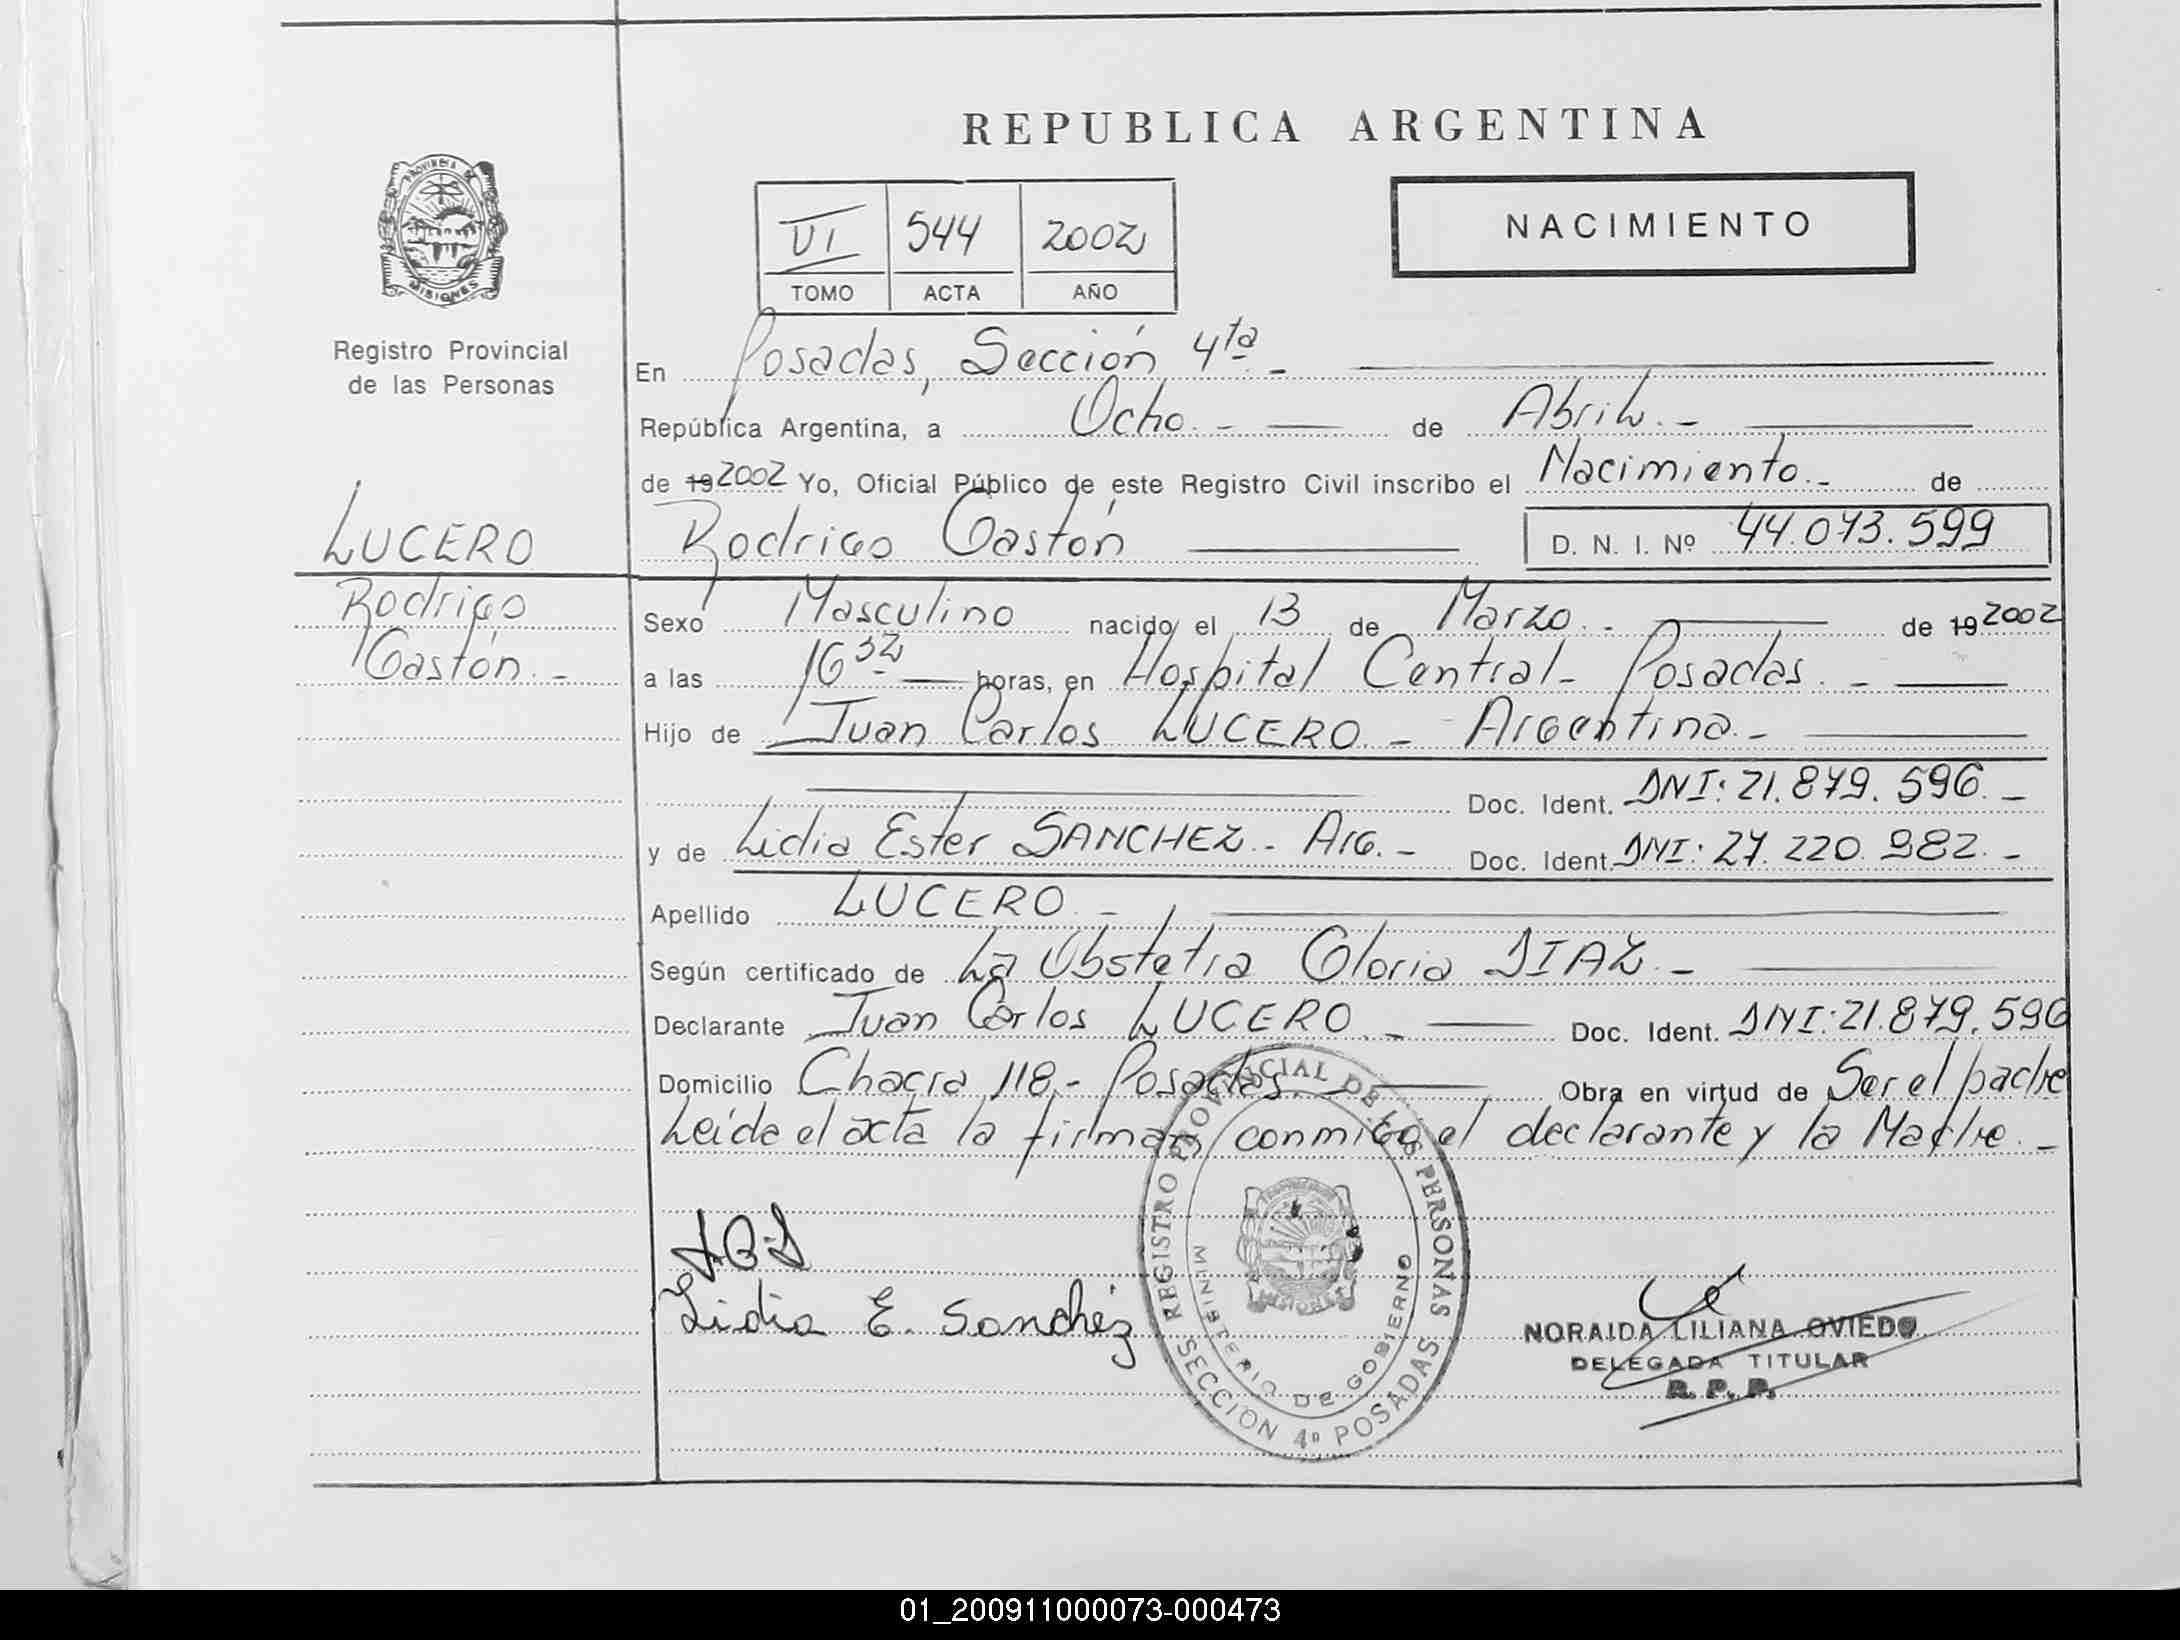 REPUBLICA ARGENTINA
PROVINCIA DE
MISIONES
Registro Provincial
de las Personas
VI 544 2002
TOMO ACTA AÑO
NACIMIENTO
En Posadas, Sección 4ta.-
República Argentina, a Ocho.- de Abril.-
de 19 2002 Yo, Oficial Público de este Registro Civil inscribo el Nacimiento.- de
LUCERO
Rodrigo Gastón D. N. I. Nº 44.073.599
Rodrigo
Gastón.-
Sexo Masculino nacido el 13 de Marzo.- de 19 2002
a las 16 32 horas, en Hospital Central- Posadas.-
Hijo de Juan Carlos LUCERO.- Argentina.-
Doc. Ident. DNI: 21.879.596.-
y de Lidia Ester SANCHEZ.- Arg.- Doc. Ident. DNI: 27.220.982.-
Apellido LUCERO.-
Según certificado de La Obstetra Gloria DIAZ.-
Declarante Juan Carlos LUCERO.- Doc. Ident. DNI: 21.879.596
Domicilio Chacra 118.- Posadas.- Obra en virtud de Ser el padre
Leída el acta la firman conmigo el declarante y la Madre.-
Lidia E. Sanchez
REGISTRO PROVINCIAL DE LAS PERSONAS
MINISTERIO DE GOBIERNO
SECCION 4º POSADAS
NORAIDA LILIANA OVIEDO
DELEGADA TITULAR
R. P. P.
01_200911000073-000473